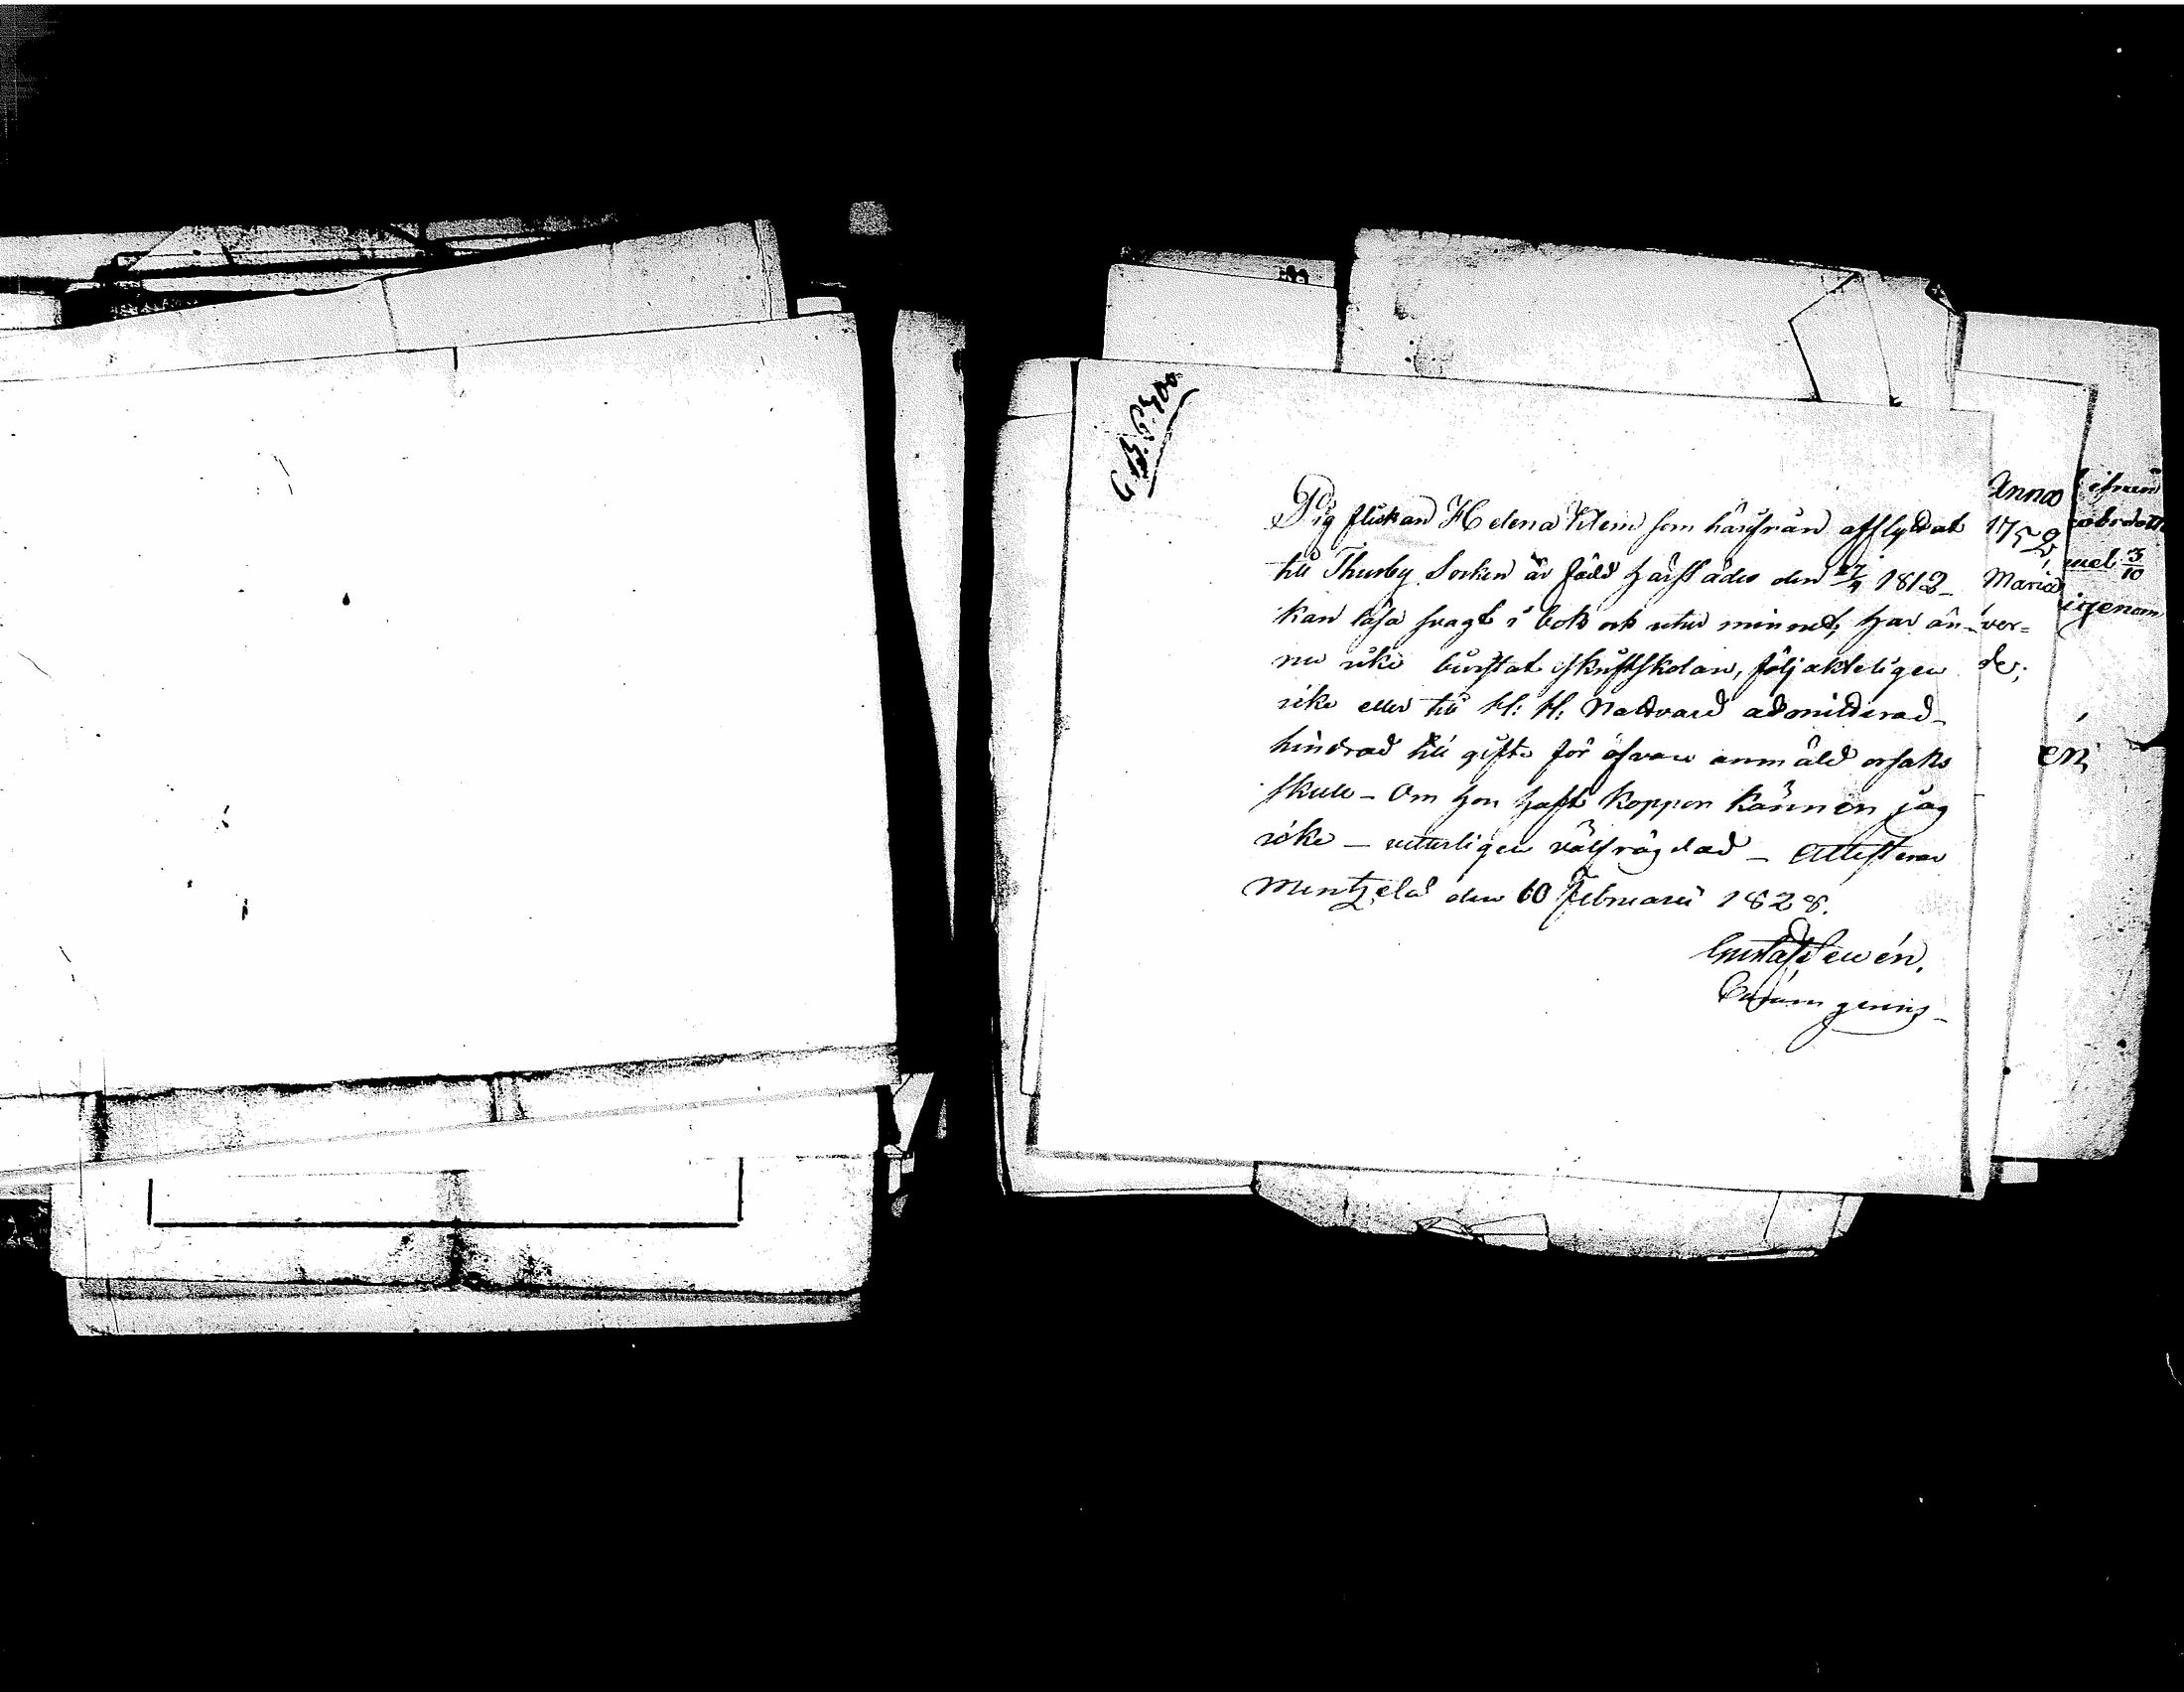 C. B. P. 700.
Pig flickan Helena Klem som härifrån afflyttat
till Thusby Socken är född härstädes den 27/4 1812 -
kan läsa svagt i bok och utur minnet, har än-
nu icke bevistat skriftskolan, följakteligen
icke eller till H: H: Nattvard admitterad -
hindrad till gifte för ofvan anmäld orsaks
skull - Om hon haft koppor känner jag
icke - veterligen välfrägdad - Attesterar
Mentzelä den 10 Februarii 1828.
Gustaf Lewén.
Anna
1752
Maria
ver=
de;
ifrån
mel 3/10
igenom
en